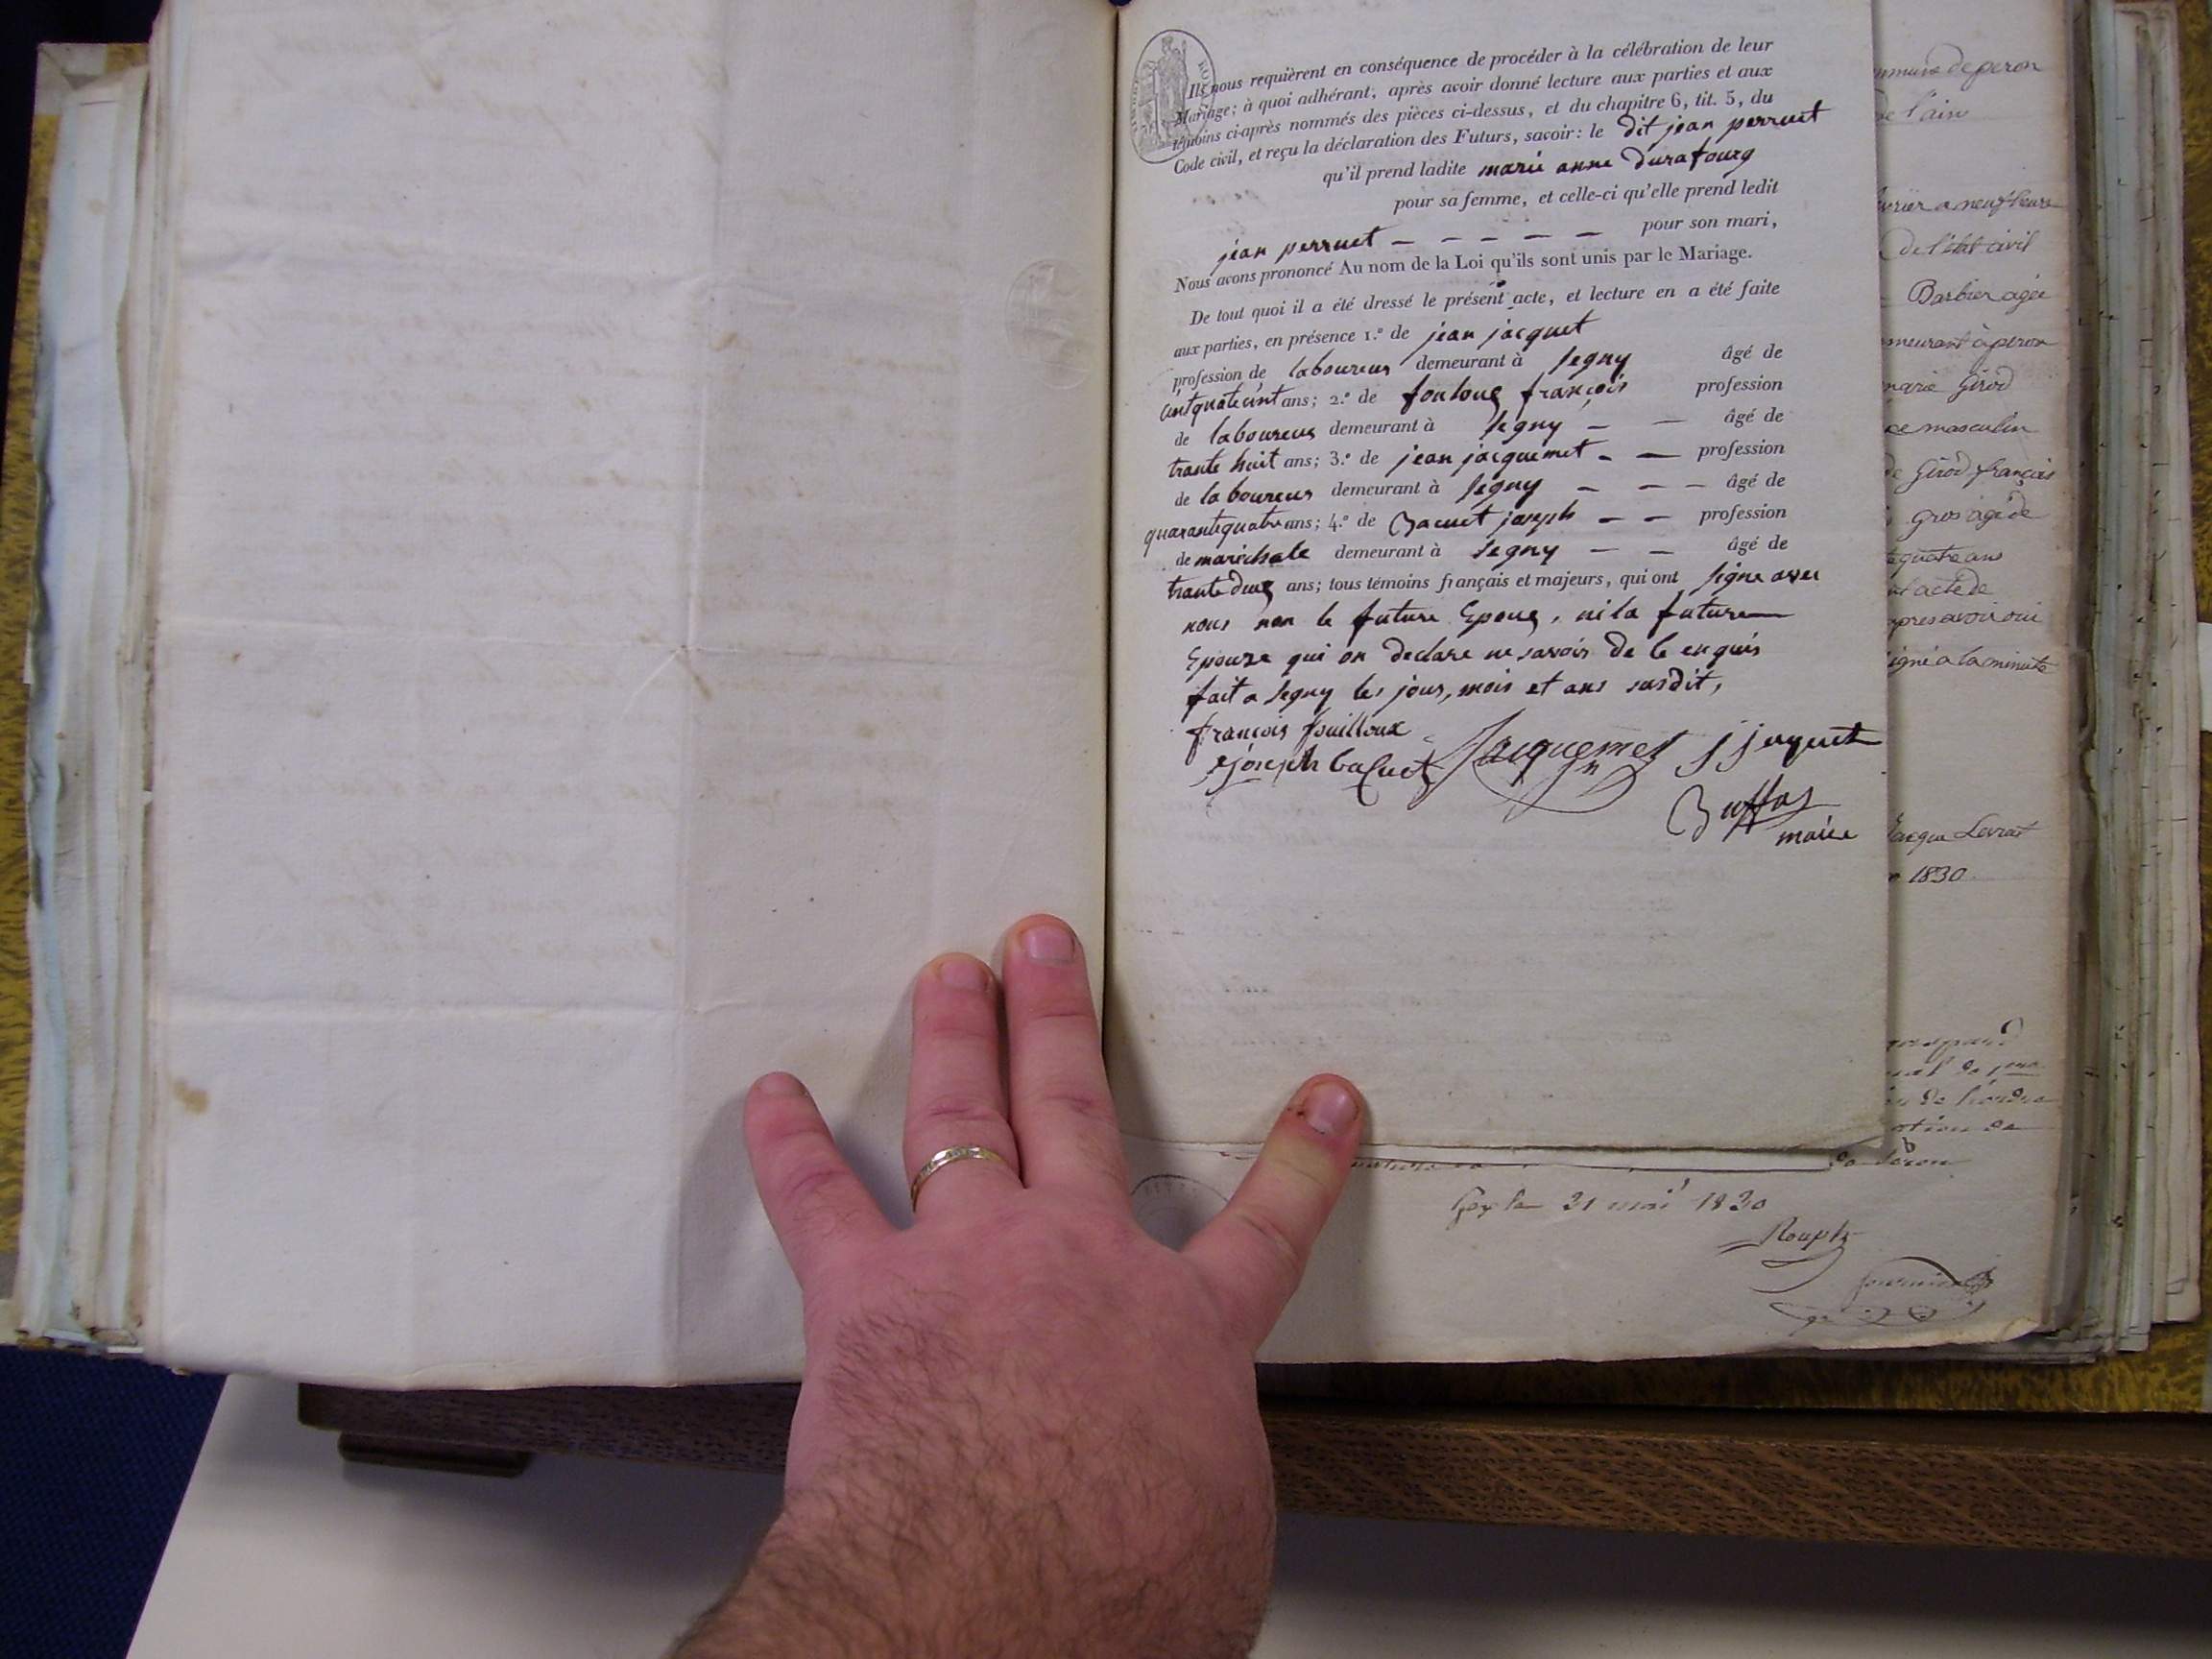 Ils nous requièrent en conséquence de procéder à la célébration de leur
Mariage; à quoi adhérant, après avoir donné lecture aux parties et aux
témoins ci-après nommés des pièces ci-dessus, et du chapitre 6, tit. 5, du
Code civil, et reçu la déclaration des Futurs, savoir: le dit jean perruet
qu'il prend ladite marie anne durafourg
pour sa femme, et celle-ci qu'elle prend ledit
jean perruet — — — — — pour son mari,
Nous avons prononcé Au nom de la Loi qu'ils sont unis par le Mariage.
De tout quoi il a été dressé le présent acte, et lecture en a été faite
aux parties, en présence 1.º de jean jacquet
profession de laboureur demeurant à segny âgé de
ans; 2.º de françois profession
de laboureur demeurant à segny — — âgé de
trante huit ans; 3.º de jean jacquemet — — profession
de laboureur demeurant à segny — — — âgé de
quarantequatre ans; 4.º de Bacuet joseph — — profession
de maréchale demeurant à segny — — âgé de
trante deux ans; tous témoins français et majeurs, qui ont signe avec
nous non le future Epoux, ni la future
Epouze qui on declare ne savoir de le enquis
fait a segny les jour, mois et ans susdit,
françois fouilloux
joseph bacuet Jacquemet j jaquet
Buffaz
maire
commune de peron
de l'ain
fevrier a neuf heure
de l'état civil
Barbier agée
demeurant à peron
marie Girod
masculin
de Girod françois
gros agé de
quatre ans
acte de
apres avoir oui
signé a la minute
Jacque Levrat
1830
de l'ordre
de
Gex le 21 mai 1830
Rouph